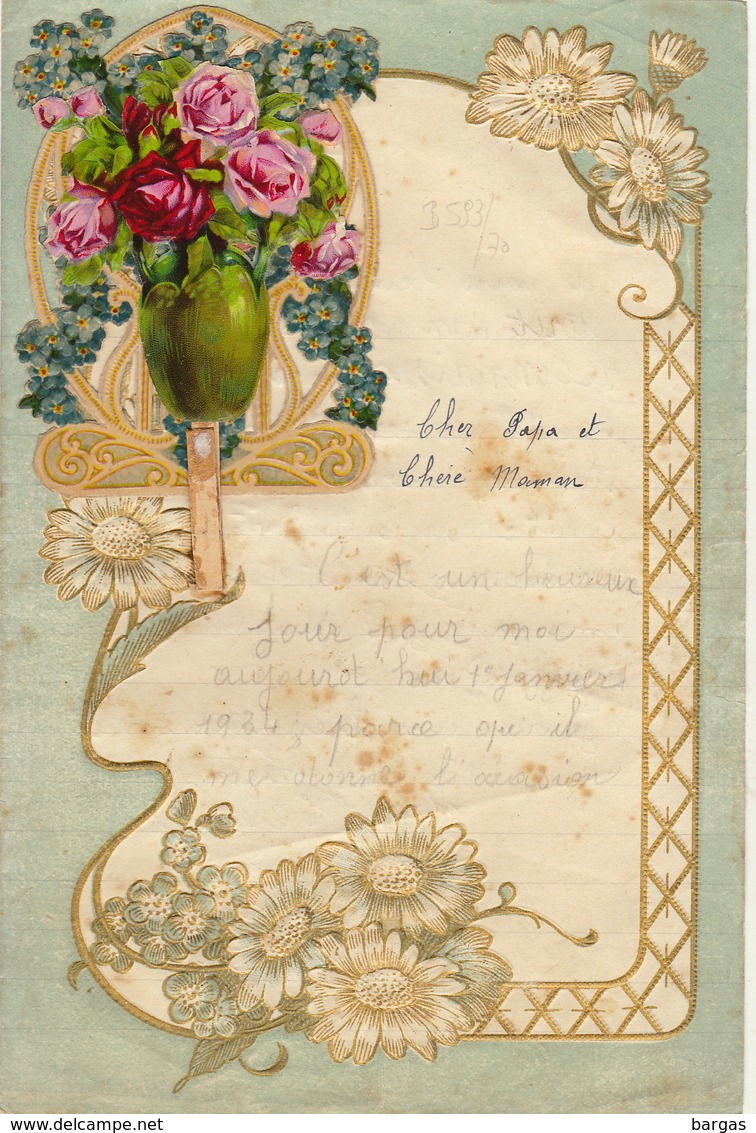 B593/
70
Cher Papa et
Chère Maman
C'est un heureux
Jour pour moi
aujourd hui 1e Janvier
1934, parce qu'il
me donne l'occasion
bargas